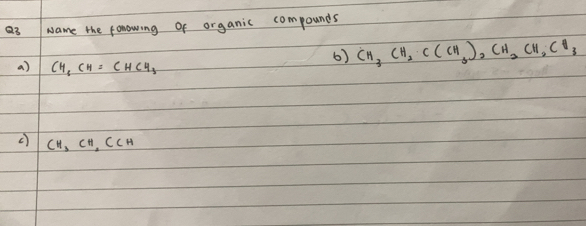 Q3 Name the following of organic compounds
a) CH₃ CH = CHCH₃
b) CH₃ CH₂ C(CH₃)₂ CH₂ CH₂ CH₃
c) CH₃ CH₂ CCH